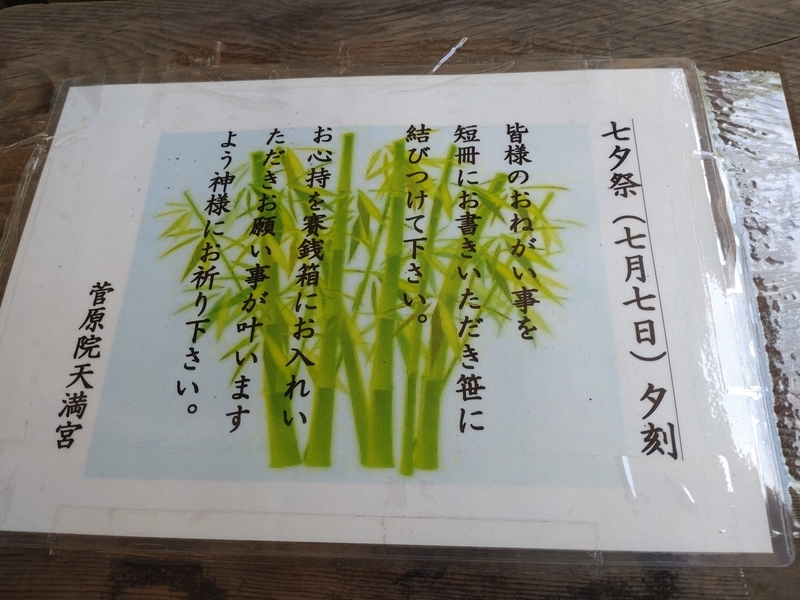 七夕祭（七月七日）夕刻
皆様のおねがい事を
短冊にお書きいただき笹に
結びつけて下さい。
お心持を賽銭箱にお入れい
ただきお願い事が叶います
よう神様にお祈り下さい。
菅原院天満宮